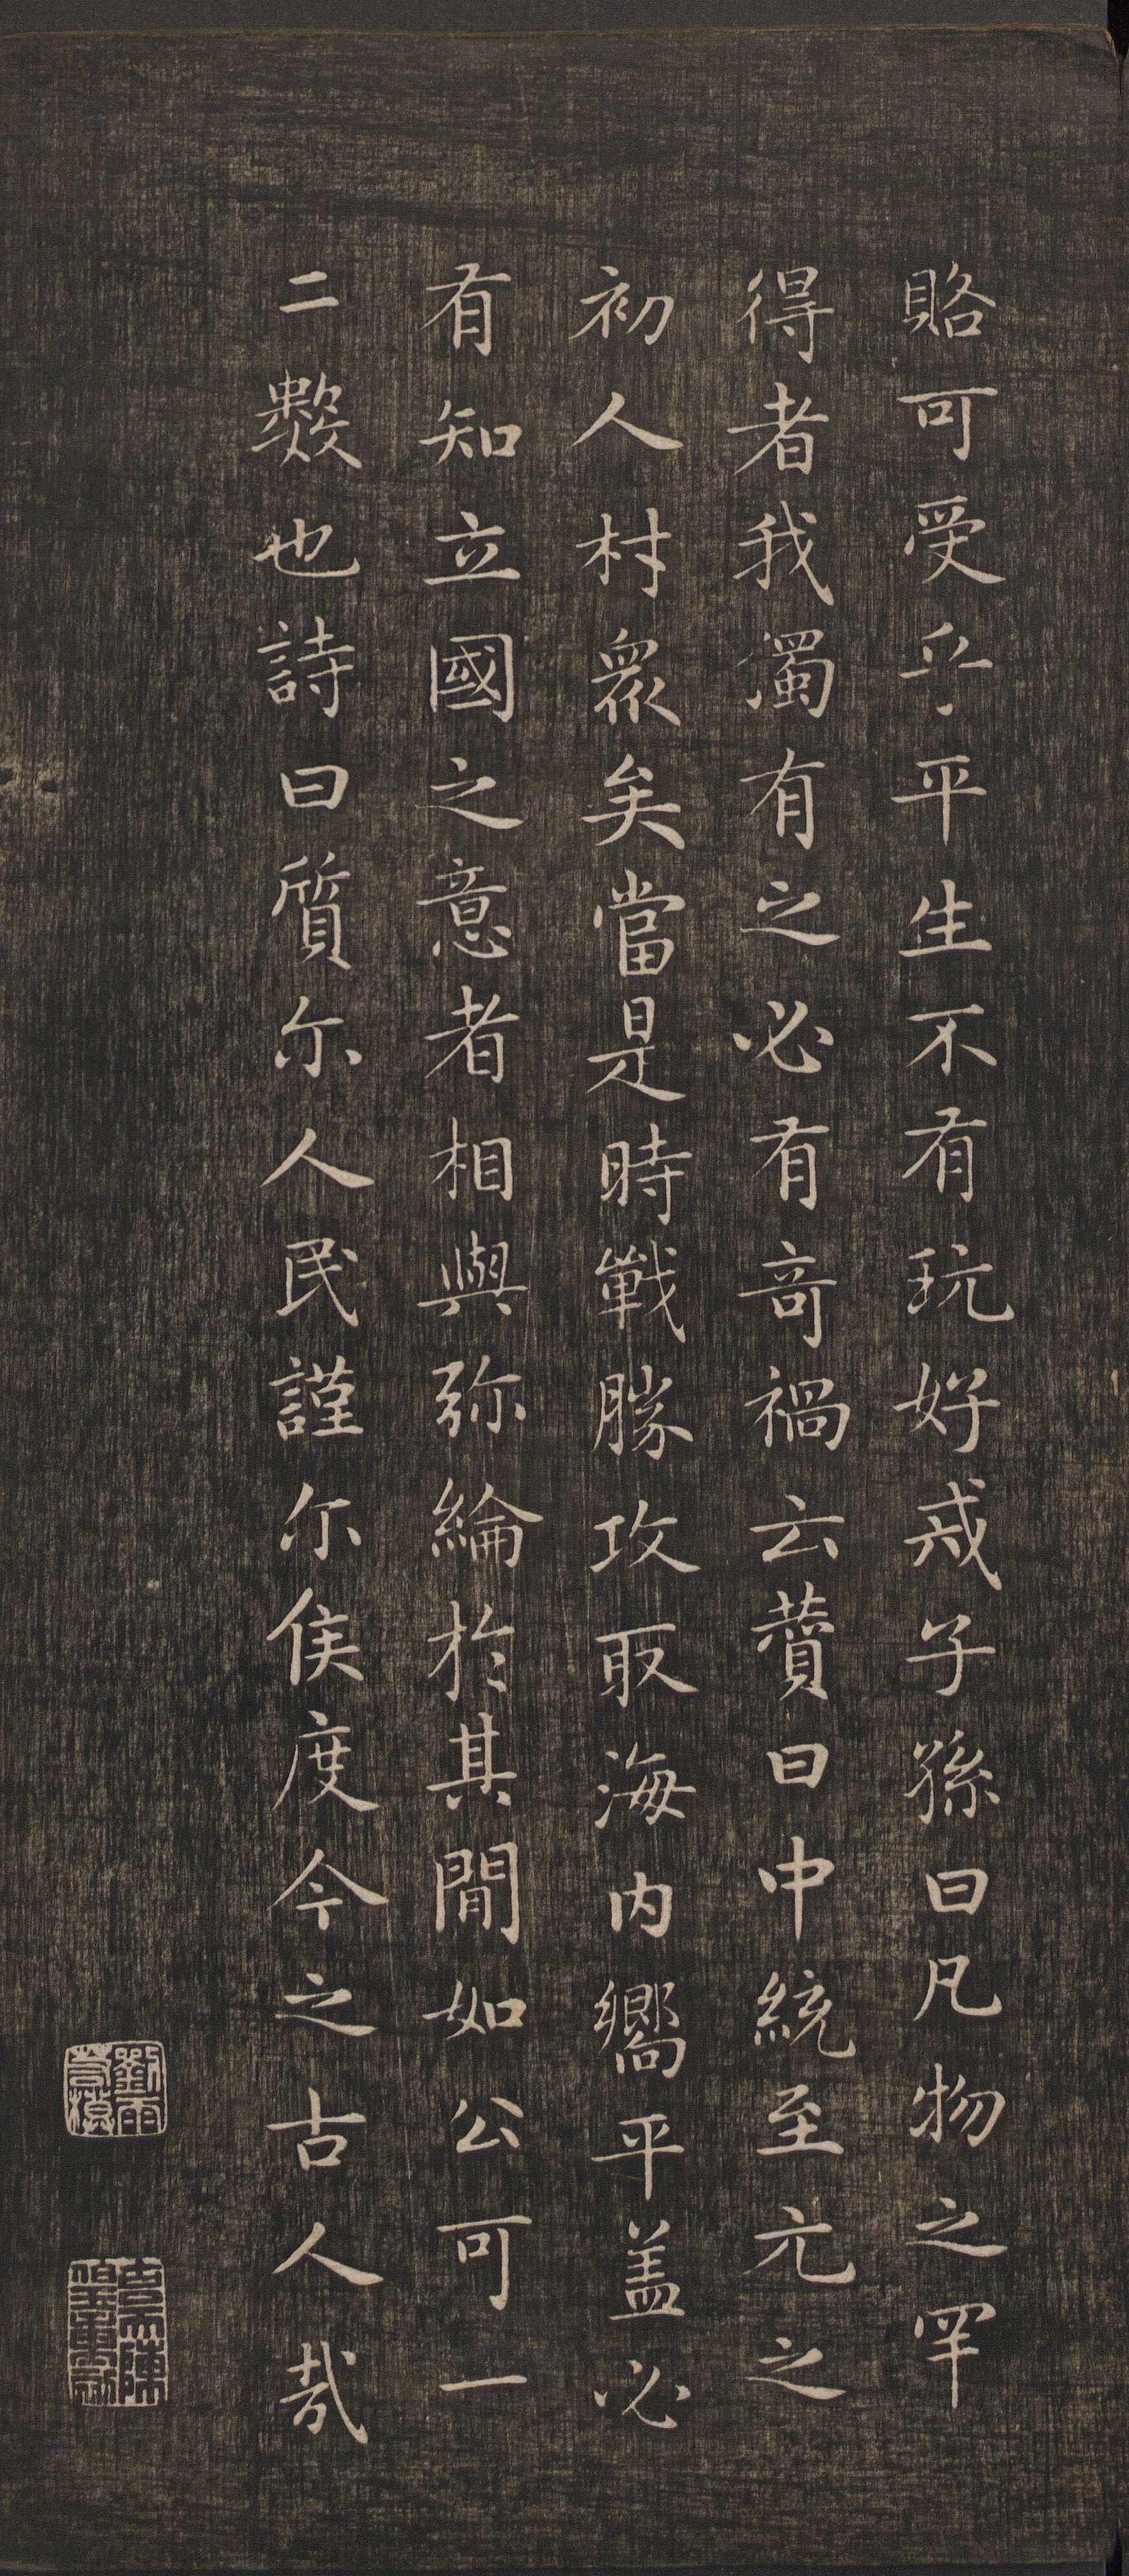 賂可受乎平生不有玩好戒子孫曰凡物之罕
得者我濁有之必有奇禍云蕒曰中統至元之
初人村眾矣當是時戰勝攻取海内嚮平盖必
有知立國之意者相與弥綸於其間如公可一
二數也詩曰質尔人民謹尔侯度今之古人哉